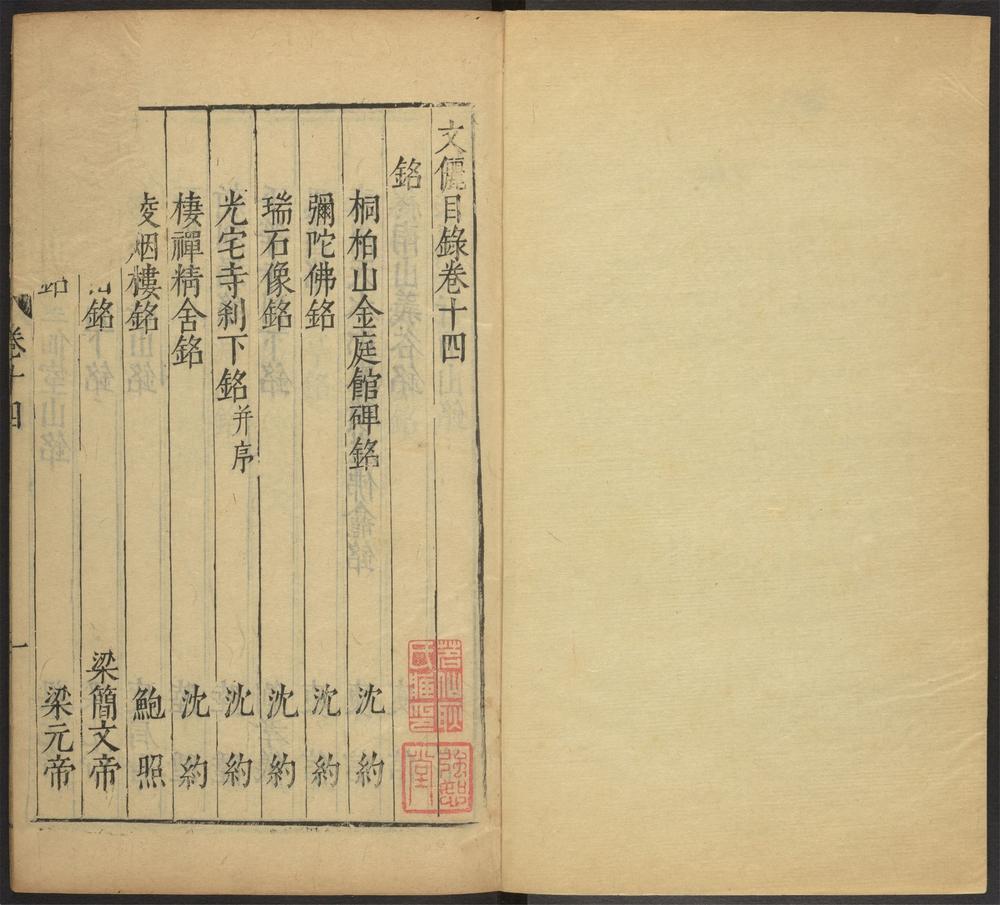 文儷目錄卷十四
銘
桐柏山金庭館碑銘 沈約
彌陀佛銘 沈約
瑞石像銘 沈約
光宅寺刹下銘并序 沈約
棲禪精舍銘 沈約
凌烟樓銘 鮑照
銘 梁簡文帝
銘 梁元帝
卷十四 一
強恕堂